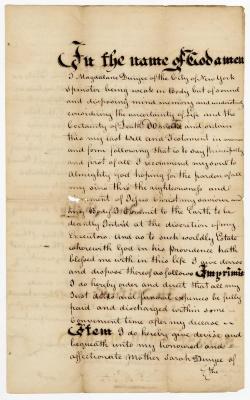 In the name of God amen
I Magdalane Dunyee of the City of New York
Spinster being weak in Body but of sound
and disposing mind memory and
considering the uncertainty of life and the
Certainty of Death Do make and ordain
this my last Will and Testament in manner
and form following that is to say Principally
and first of all I recommend my soul to
Almighty God hoping for the pardon of all
my sins thro the righteousness and
of Jesus Christ my saviour
my Body I Commit to the Earth to be
decently Interd at the discretion of my
Executors And as to such worldly Estate
wherewith God in his Providence hath
blessed me with in this life I give devise
and dispose thereof as follows Imprimis
I do hereby order and direct that all my
Just debts and funeral expences be fully
paid and discharged within some
Convenient time after my decease
Item I do hereby give devise and
bequeath unto my honoured and
affectionate Mother Sarah Dunyee of
the